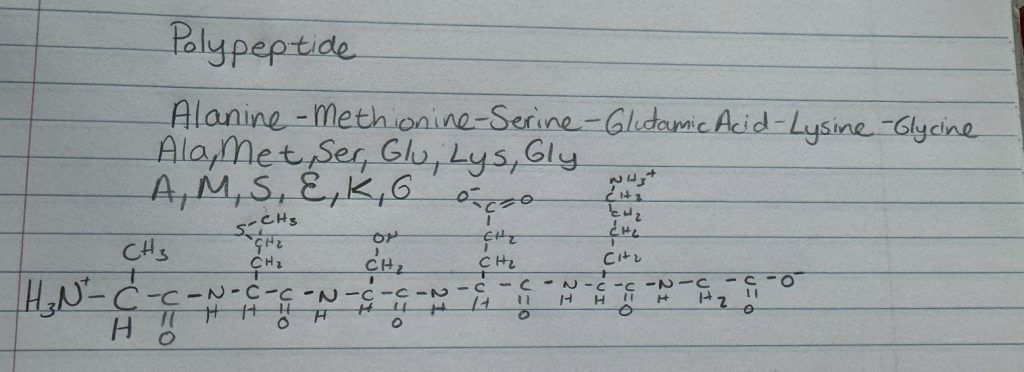 Polypeptide
Alanine - Methionine - Serine - Glutamic Acid - Lysine - Glycine
Ala, Met, Ser, Glu, Lys, Gly
A, M, S, E, K, G
NH3+
O- C=O CH2
S-CH3 CH2
CH2 OH CH2 CH2
CH3 CH2 CH2 CH2 CH2
H3N+-C-C-N-C-C-N-C-C-N-C-C-N-C-C-N-C-C-O-
H O H H O H H O H H O H H O H H2 O